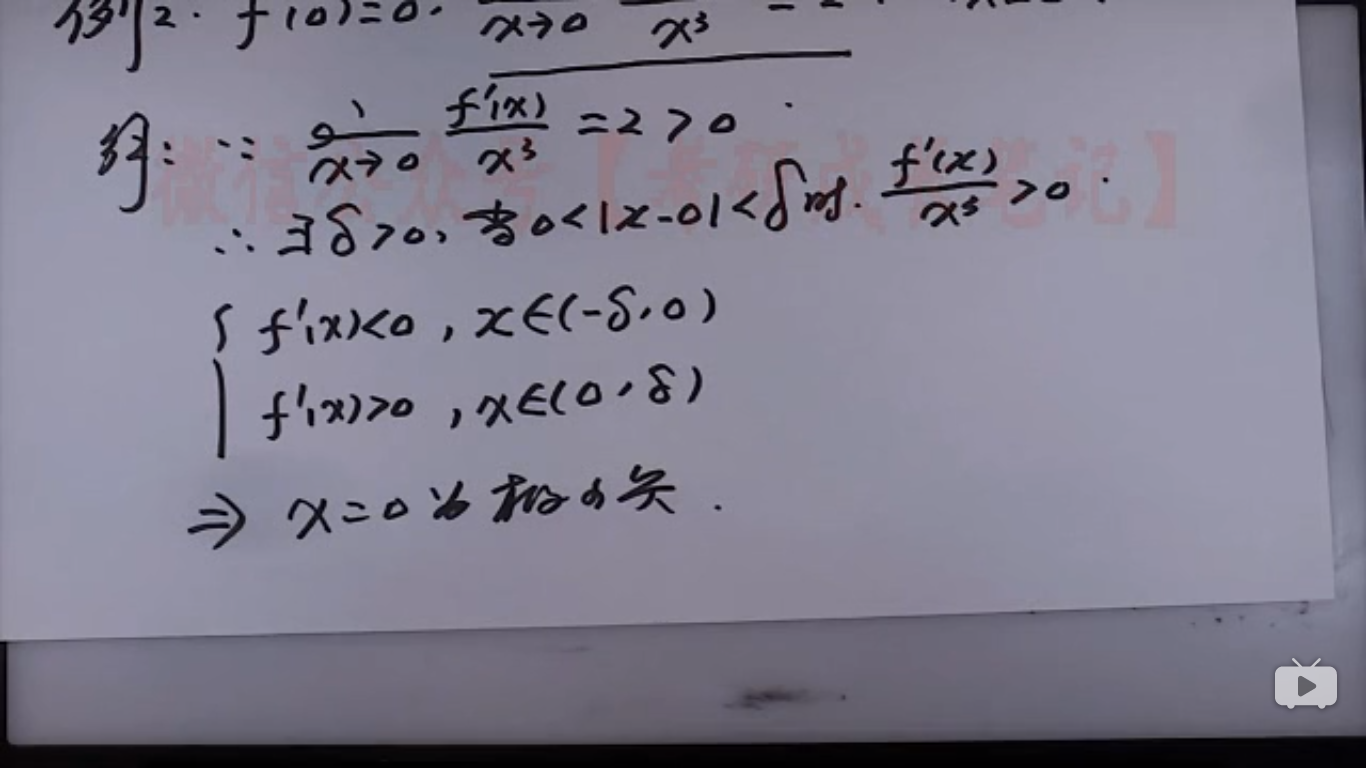 例2. f(0)=0. x→0 x³ = 2
解: ∵ lim x→0 f'(x)/x³ = 2 > 0
∴ ∃δ>0, 当0<|x-0|<δ时. f'(x)/x³ > 0
{ f'(x)<0, x∈(-δ,0)
f'(x)>0, x∈(0,δ)
⇒ x=0为极小点.
微信公众号【考研成笔记】